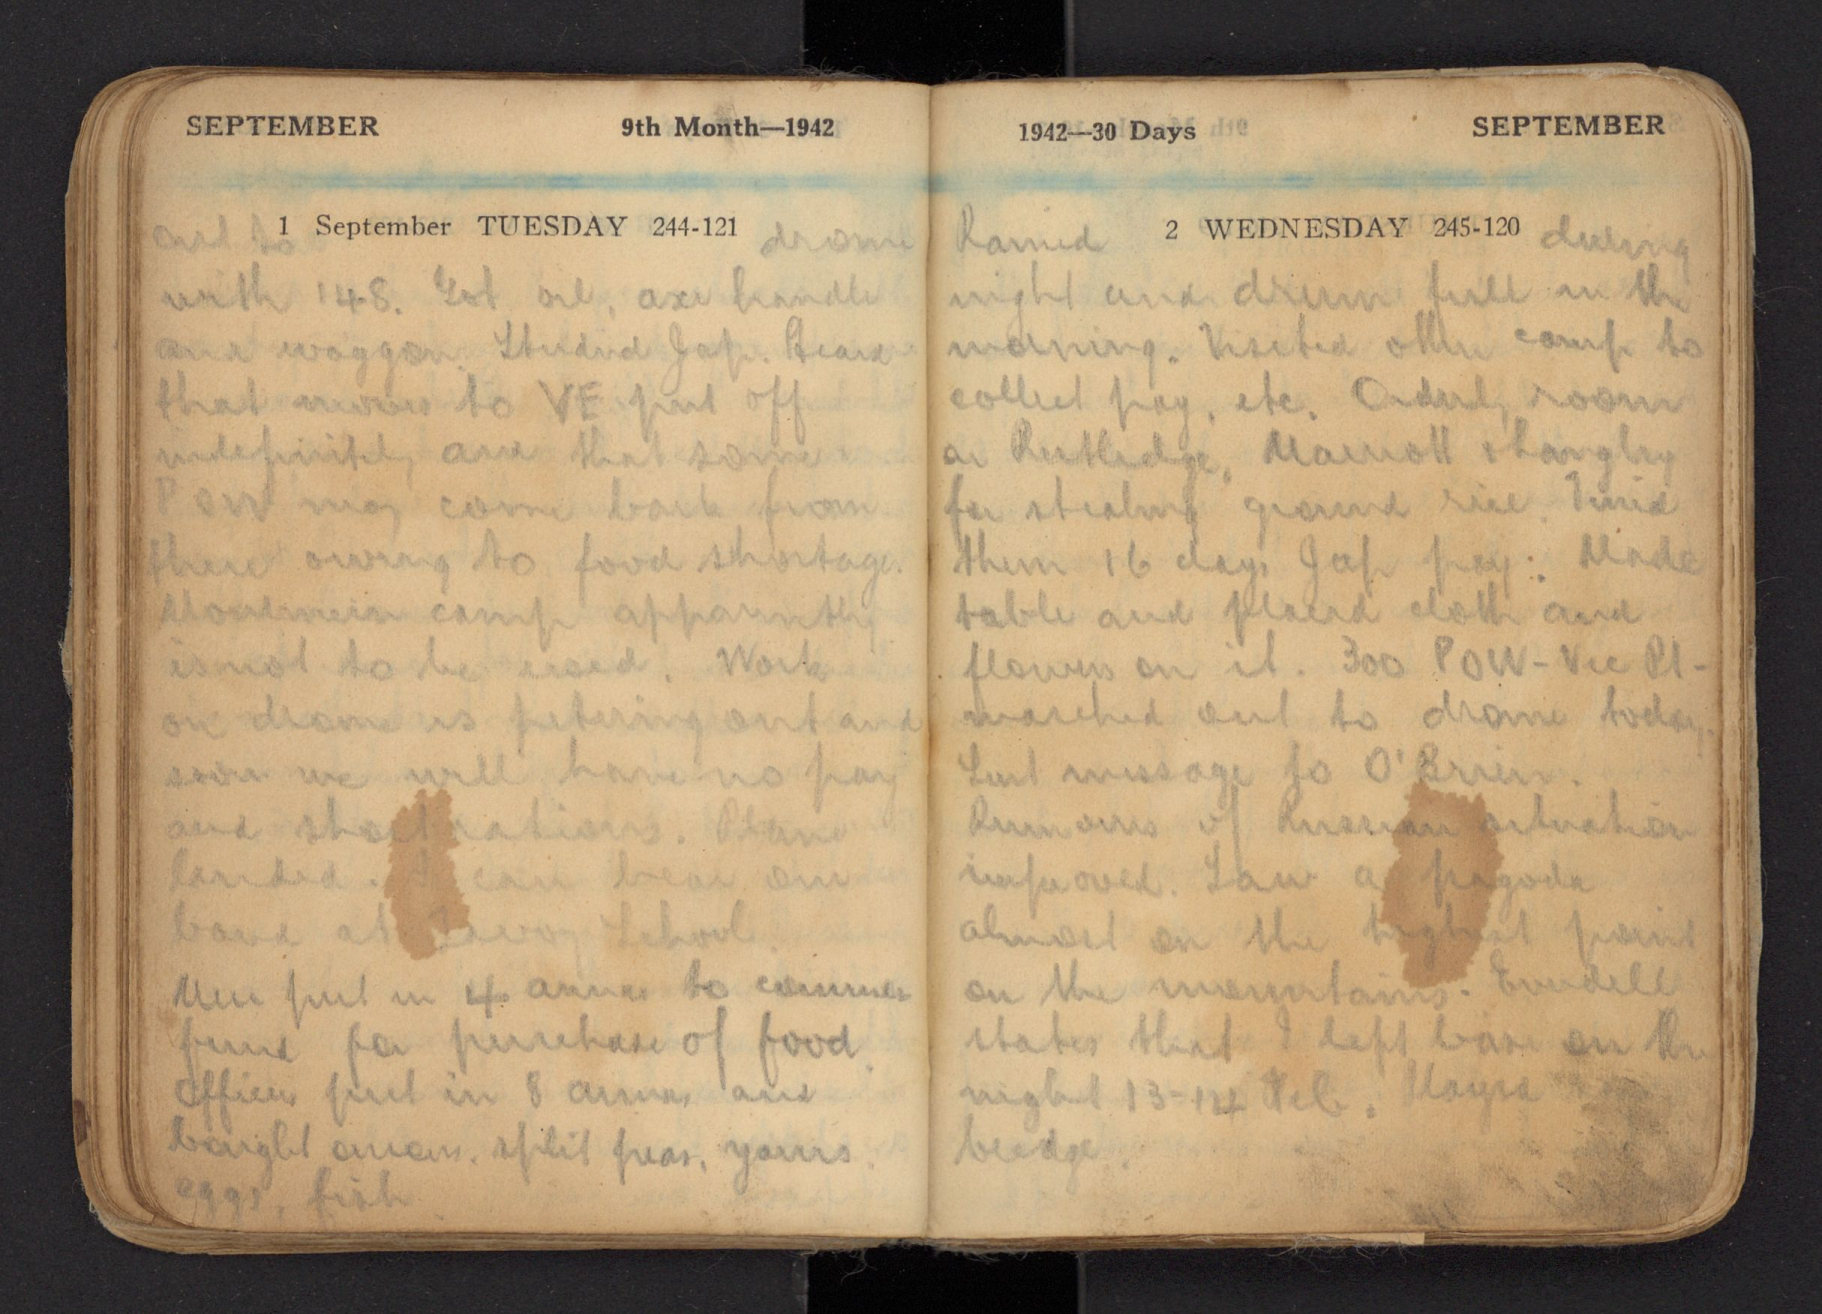 SEPTEMBER 9th Month—1942
1 September TUESDAY 244-121
out to drome
with 148. Got oil, axe handle
and waggon. Studied Jap. Heard
that moves to VE put off
indefinitely and that some
POW may come back from
there owing to food shortage.
Moulmein camp apparently
is not to be used. Work
on drome is petering out and
soon we will have no pay
and short rations. Plane
landed. I can hear our
band at Tavoy School.
Men put in 4 annas to common
fund for purchase of food.
Officers put in 8 annas and
bought onions, split peas, yams,
eggs, fish
1942—30 Days SEPTEMBER
2 WEDNESDAY 245-120
Rained during
night and drum full in the
morning. Visited other camp to
collect pay, etc. Orderly room
a Rutledge, Marriott & Langley
for stealing ground rice. Fined
them 16 days Jap pay. Made
table and placed cloth and
flowers on it. 300 POW - Vic Pt -
marched out to drome today.
Sent message to O'Brien.
Rumours of Russian situation
improved. Saw a pagoda
almost on the highest point
on the mountains.
states that I left base on the
night 13-14 Feb. Played
bridge.